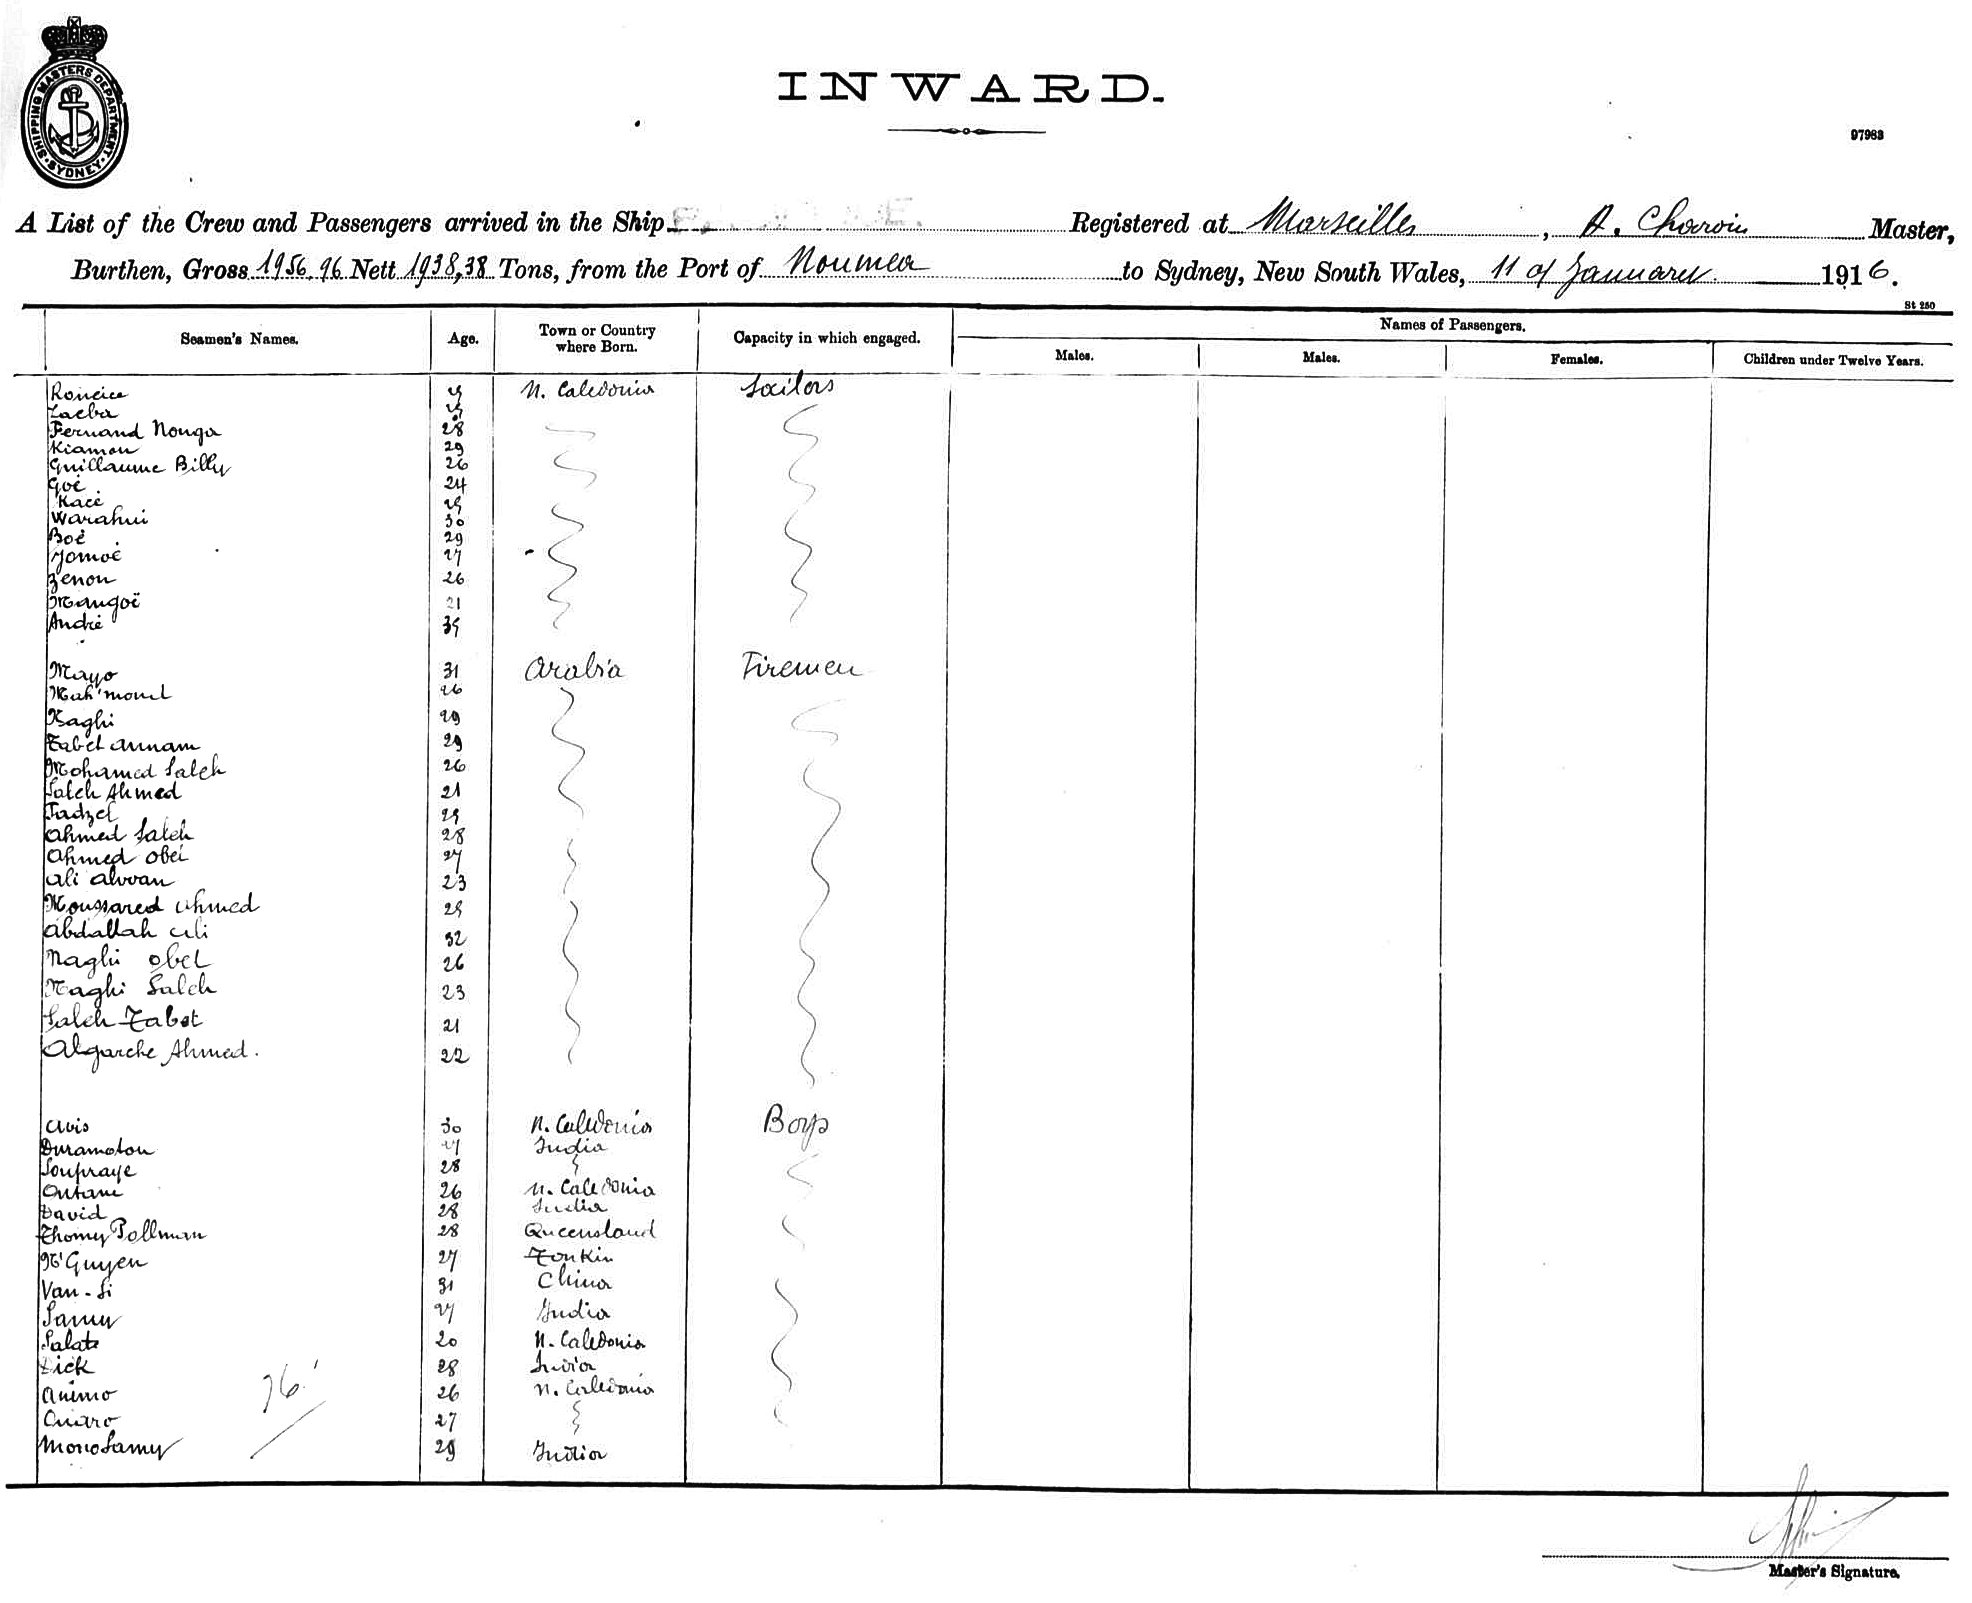 SHIPPING MASTERS DEPARTMENT SYDNEY
INWARD.
97983
A List of the Crew and Passengers arrived in the Ship Registered at Marseilles, A. Charvin Master,
Burthen, Gross 1956,96 Nett 1938,38 Tons, from the Port of Noumea to Sydney, New South Wales, 11 of January 1916.
St 250
Seamen's Names. Age. Town or Country where Born. Capacity in which engaged. Names of Passengers.
Males. Males. Females. Children under Twelve Years.
N. Caledonia Sailors
Fernand Nonga 28
Kiamon 29
Guillaume Billy 26
Goé 24
Kacé
Warahui 30
Boé 29
Yomoé 27
Zenon 26
Mangoë 21
André
Mayo 31 Arabia Firemen
Mah'moud 26
Naghi 29
Tabet Annam 29
Mohamed Saleh 26
Saleh Ahmed 21
Fadzel
Ahmed Saleh 28
Ahmed Obei 27
Ali Alwan 23
Moussared Ahmed
Abdallah Ali 32
Naghi Obet 26
Naghi Saleh 23
Saleh Tabet 21
Algarche Ahmed. 22
Avis 30 N. Caledonia Boys
Duramoton 27 India
Soupraye 28
Outane 26 N. Caledonia
David 28 India
Thomy Pollman 28 Queensland
N'Guyen 27 Tonkin
Van-Si 31 China
Samy 27 India
Salato 20 N. Caledonia
Dick 28 India
Animo 26 N. Caledonia
Ouaro 27
MonoSamy 29 India
76
Master's Signature.